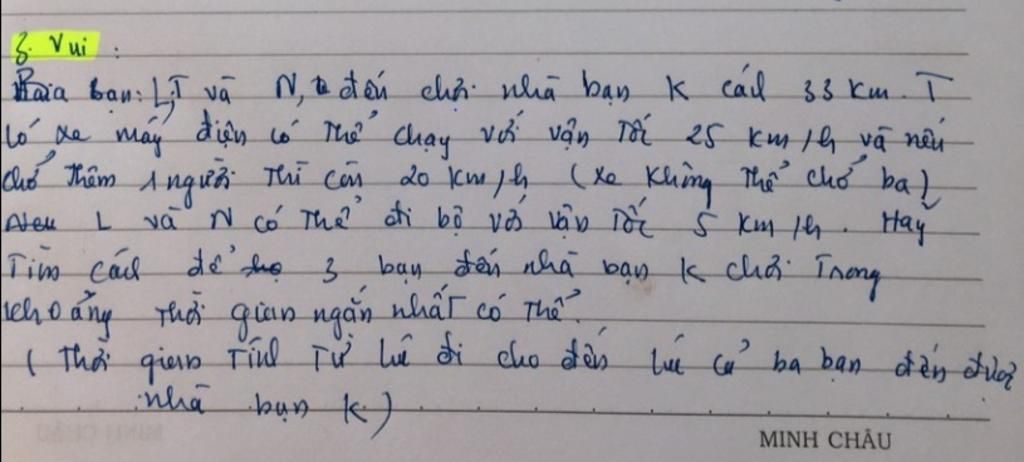 3. Vui :
Ba bạn: L, T và N, đến chơi nhà bạn K cách 33 km. T
Có xe máy điện có thể chạy với vận tốc 25 km/h và nếu
chở thêm 1 người thì còn 20 km/h (xe không thể chở ba)
L và N có thể đi bộ với vận tốc 5 km/h. Hãy
Tìm cách để 3 bạn đến nhà bạn K chơi Trong
khoảng thời gian ngắn nhất có thể.
( Thời gian Tính Từ lúc đi cho đến lúc cả ba bạn đến được
nhà bạn K)
MINH CHÂU